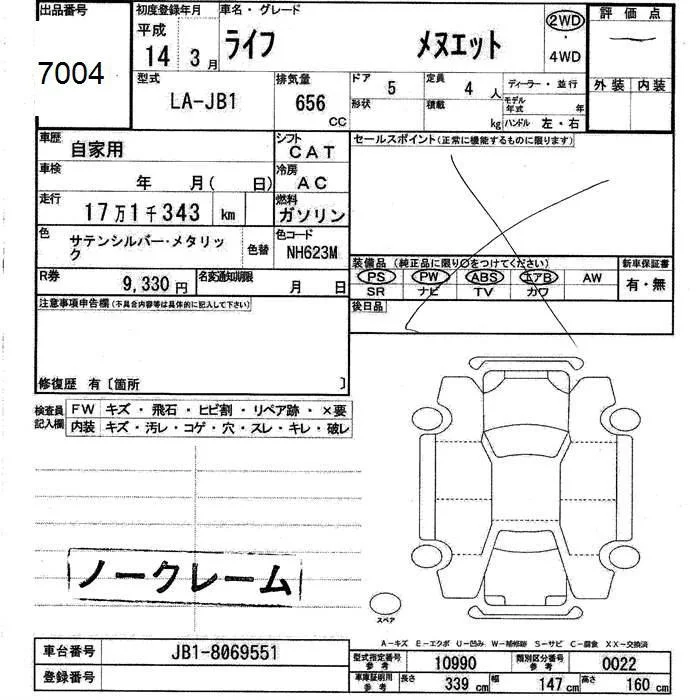 出品番号
7004
初度登録年月
平成
14 3月
車名・グレード
ライフ メヌエット
2WD
・
4WD
評価点
外装 内装
型式
LA-JB1
排気量
656
CC
ドア
5
定員
4人
ディーラー・並行
形状
積載
kg
モデル年式 年
ハンドル 左・右
車歴
自家用
シフト
CAT
車検
年 月( 日)
冷房
AC
走行
17万1千343 km
燃料
ガソリン
色
サテンシルバー・メタリック
色替
色コード
NH623M
R券
9,330円
名変通知期限
月 日
セールスポイント(正常に機能するものに限ります)
装備品 (純正品に限り○をつけてください)
PS PW ABS エアB AW
SR ナビ TV カワ
新車保証書
有・無
後日品
注意事項申告欄(不具合内容等は具体的に記入して下さい)
修復歴 有〔箇所 〕
検査員記入欄
FW キズ・飛石・ヒビ割・リペア跡・×要
内装 キズ・汚レ・コゲ・穴・スレ・キレ・破レ
ノークレーム
スペア
A-キズ E-エクボ U-凹み W-補修跡 S-サビ C-腐食 XX-交換済
車台番号
JB1-8069551
登録番号
型式指定番号
参考
10990
類別区分番号
参考
0022
車庫証明用
参考
長さ 339 cm 幅 147 cm 高さ 160 cm